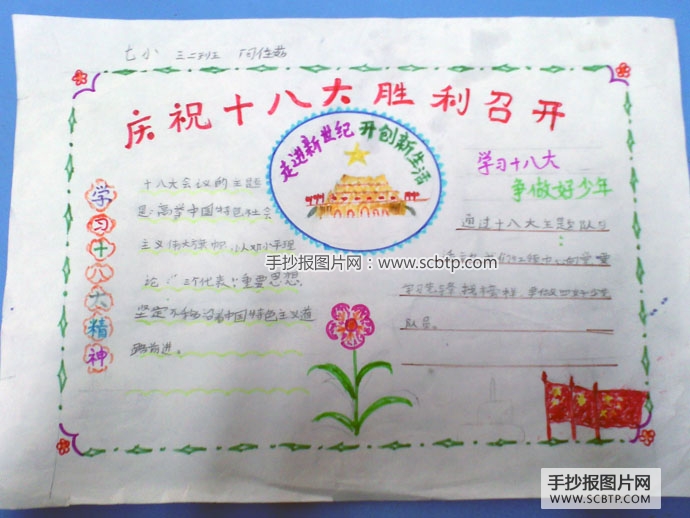 七小 三二班
庆祝十八大胜利召开
走进新世纪 开创新生活
学习十八大
争做好少年
学习十八大精神
十八大会议的主题
是:高举中国特色社会
主义伟大旗帜,以邓小平理
论“三个代表”重要思想
坚定不移沿着中国特色主义道
路前进。
通过十八大主题队日
队员。
手抄报图片网:www.scbtp.com
手抄报图片网
WWW.SCBTP.COM